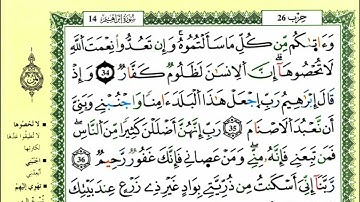 سُورَةُ إِبْرَاهِيمَ 14
حِزْب 26
وَءَاتَىٰكُم مِّن كُلِّ مَا سَأَلْتُمُوهُ وَإِن تَعُدُّوا۟ نِعْمَتَ ٱللَّهِ
لَا تُحْصُوهَآ إِنَّ ٱلْإِنسَٰنَ لَظَلُومٌ كَفَّارٌ 34 وَإِذْ
قَالَ إِبْرَٰهِيمُ رَبِّ ٱجْعَلْ هَٰذَا ٱلْبَلَدَ ءَامِنًا وَٱجْنُبْنِى وَبَنِىَّ
أَن نَّعْبُدَ ٱلْأَصْنَامَ 35 رَبِّ إِنَّهُنَّ أَضْلَلْنَ كَثِيرًا مِّنَ ٱلنَّاسِ
فَمَن تَبِعَنِى فَإِنَّهُۥ مِنِّى وَمَنْ عَصَانِى فَإِنَّكَ غَفُورٌ رَّحِيمٌ 36
رَّبَّنَآ إِنِّىٓ أَسْكَنتُ مِن ذُرِّيَّتِى بِوَادٍ غَيْرِ ذِى زَرْعٍ عِندَ بَيْتِكَ
لَا تُحْصُوهَا
لَا تُطِيقُوا عَدَّهَا
لِكَثْرَتِهَا
اجْنُبْنِي
أَبْعِدْنِي
تَهْوِي إِلَيْهِمْ